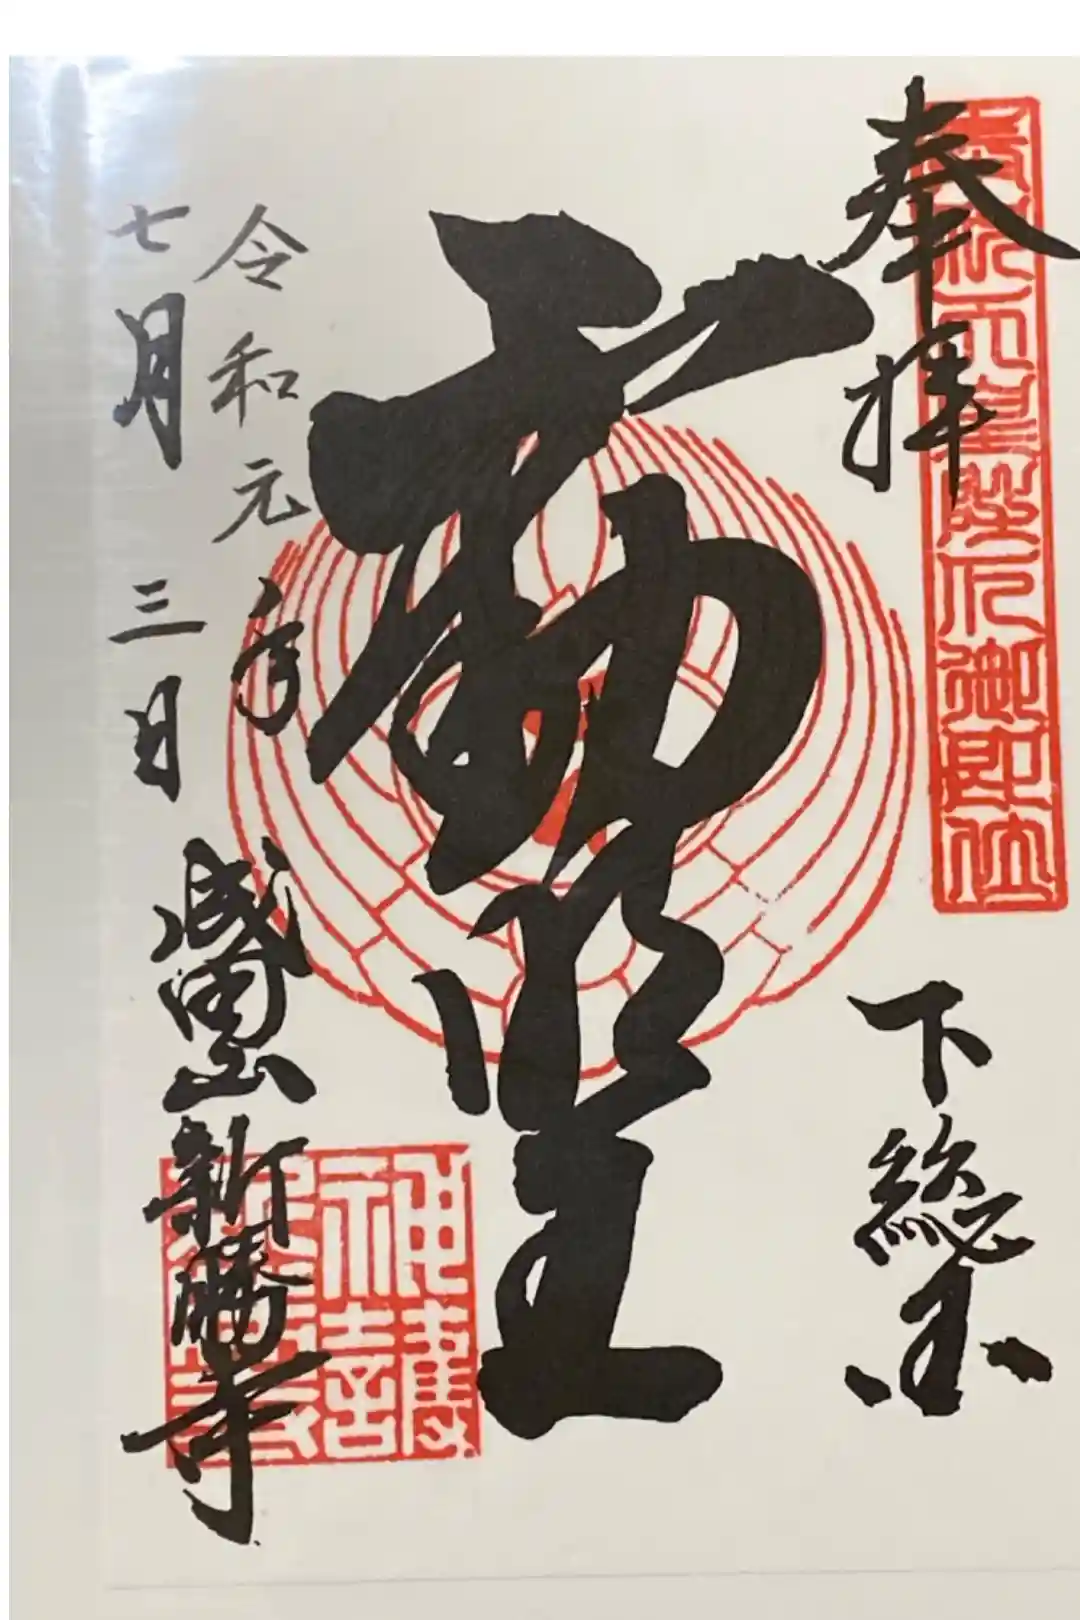 奉拝
奉祝天皇陛下御即位
下総
不動明王
令和元年
七月三日
成田山新勝寺